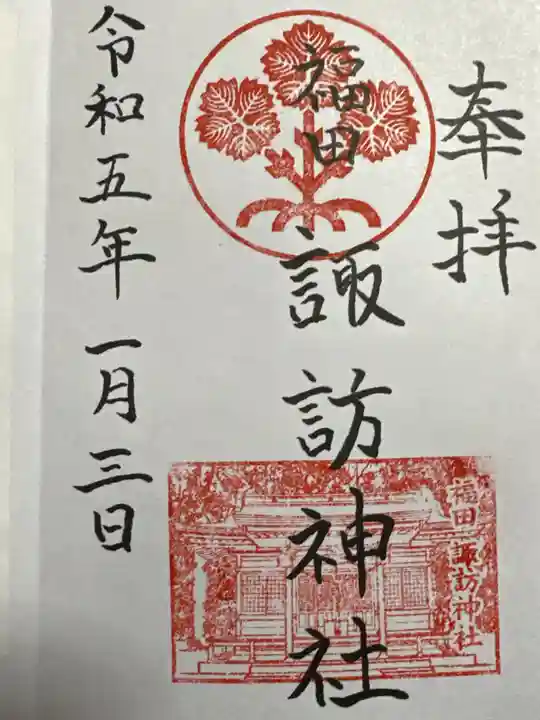 奉拝
福田
諏訪神社
福田 諏訪神社
令和五年一月三日